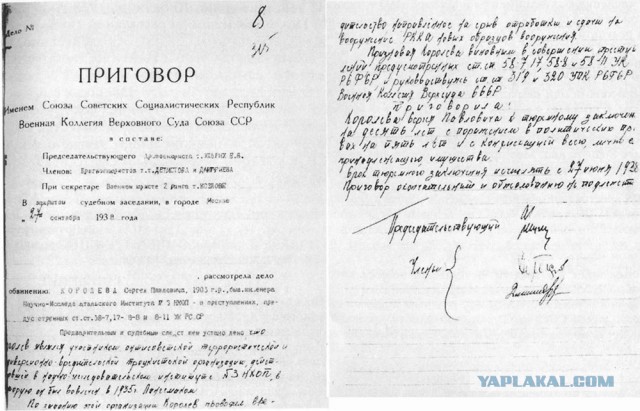 Дело №
8
ПРИГОВОР
Именем Союза Советских Социалистических Республик
Военная Коллегия Верховного Суда Союза ССР
в составе:
Председательствующего
Членов:
При секретаре Военном юристе 2 ранга т.
В закрытом судебном заседании, в городе Москве
"27" сентября 1938 года
, рассмотрела дело
обвинению: КОРОЛЕВА Сергея Павловича, 190 г.р., быв. инженера
Научно-Исследовательского Института № 3 НКОП - в преступлениях, пред-
усмотренных ст.ст. 58-7, 17- -8 и 58-11 УК РСФСР
Предварительным и судебным следствием установлено что
Королев являлся участником антисоветской террористической и
диверсионно вредительской троцкистской организации, действо-
вавшей в научно исследовательском институте №3 НКОП, в
которую он был вовлечен в 1935г. Лангемаком.
По заданию этой организации Королев проводил вре-
дительство направленное на срыв отработки и сдачи на
вооружение РККА новых образцов вооружения.
Признавая Королева виновным в совершении преступ-
лений предусмотренных ст.ст 58-7, 17-58-8 и 58-11 УК
РСФСР и руководствуясь ст.ст 319 и 320 УПК РСФСР
Военная Коллегия Верхсуда СССР
Приговорила:
Королева Сергея Павловича к тюремному заключению
на десять лет с поражением в политических пра-
вах на пять лет и с конфискацией всего лично ему
принадлежащего имущества.
Срок тюремного заключения исчислять с 27 июня 1938
Приговор окончательный и обжалованию не подлежит
Председательствующий
Члены
YAPLAKAL.COM